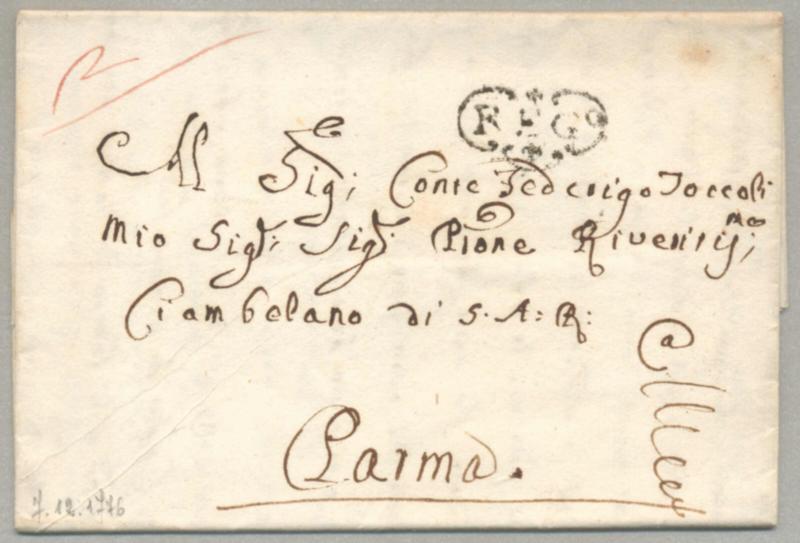 R E Go
Al Sig: Conte Federigo Toccoli
mio Sigr: Sigr: Prone Riveritis: mo
Ciambelano di S. A: R:
Parma.
7.12.1776